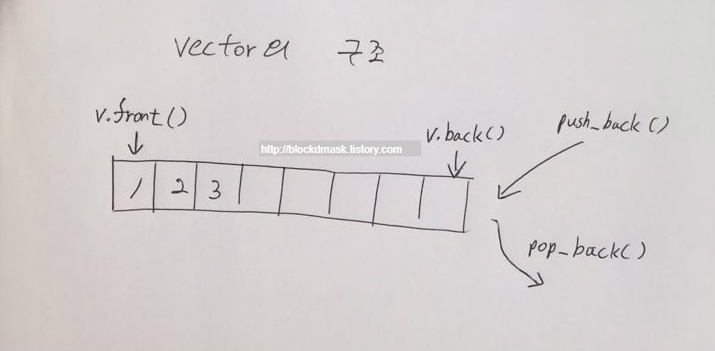 vector의 구조
v.front()
http://blockdmask.tistory.com
v.back()
push_back()
1 2 3
pop_back()